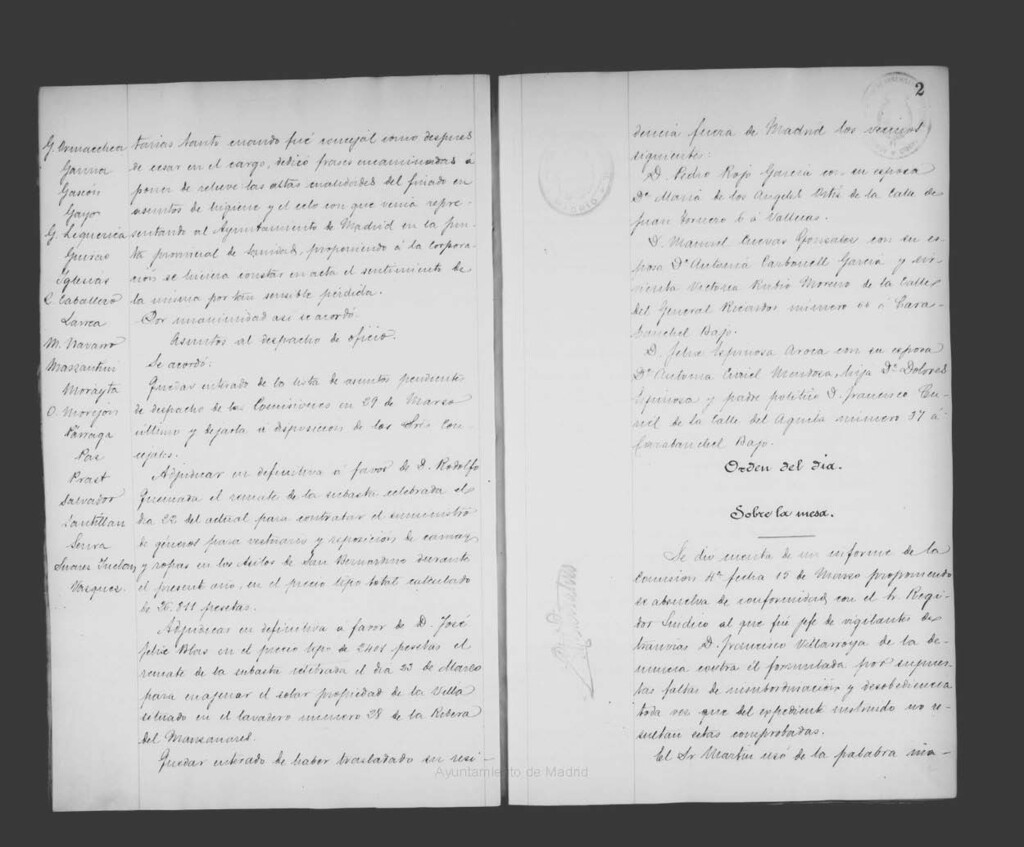 G. Ormaechea
Gauna
Gascón
Gayo
G. Lequerica
Guirao
Iglesias
L. Caballero
Larrea
M. Navarro
Mazzantini
Morayta
O. Morejón
Párraga
Paz
Prast
Salvador
Santillán
Senra
Suarez Inclan
Vazquez
tarias tanto cuando fué concejal como despues
de cesar en el cargo, dedicó frases encaminadas á
poner de relieve las altas cualidades del finado en
asuntos de higiene y el celo con que venía repre-
sentando al Ayuntamiento de Madrid en la jun-
ta provincial de Sanidad, proponiendo á la Corpora-
ción se hiciera constar en acta el sentimiento de
la misma por tan sensible pérdida.
Por unanimidad así se acordó.
Asuntos al despacho de oficio.
Se acordó:
Quedar enterado de la lista de asuntos pendientes
de despacho de las Comisiones en 29 de Marzo
último y dejarla á disposición de los Sres Con-
cejales.
Adjudicar en definitiva á favor de D. Rodolfo
el remate de la subasta celebrada el
dia 22 del actual para contratar el suministro
de géneros para vestuario y reposición de camas
y ropas en los Asilos de San Bernardino durante
el presente año, en el precio tipo total calculado
de 26.811 pesetas.
Adjudicar en definitiva á favor de D. José
Felix Blas en el precio tipo de 2401 pesetas el
remate de la subasta celebrada el dia 23 de Marzo
para enajenar el solar propiedad de la Villa
situado en el lavadero número 28 de la Ribera
del Manzanares.
Quedar enterado de haber trasladado su resi-
2
dencia fuera de Madrid los vecinos
siguientes:
D. Pedro Rojo García con su esposa
Dª María de los Angeles de la Calle de
Juan Tornero 6 á Vallecas.
D. Manuel Cuevas Gonzalez con su es-
posa Dª Antonia Carbonell García y sir-
vienta Victoria Rubio Moreno de la Calle
del General Ricardos número á Cara-
banchel Bajo.
D. Felix Espinosa Aroca con su esposa
Dª Antonia Mendoza, hija Dª Dolores
Espinosa y padre político D. Francisco
de la Calle del Aguila número 37 á
Carabanchel Bajo.
Orden del dia.
Sobre la mesa.
Se dio cuenta de un informe de la
Comisión 4ª fecha 15 de Marzo proponiendo
se absuelva de conformidad con el Sr. Regi-
dor Síndico al que fué jefe de vigilantes de
tranvías D. Francisco Villarroya de la de-
nuncia contra él formulada por supues-
tas faltas de insubordinación y desobediencia
toda vez que del expediente instruido no re-
sultan estas comprobadas.
El Sr Martin usó de la palabra ma-
Ayuntamiento de Madrid